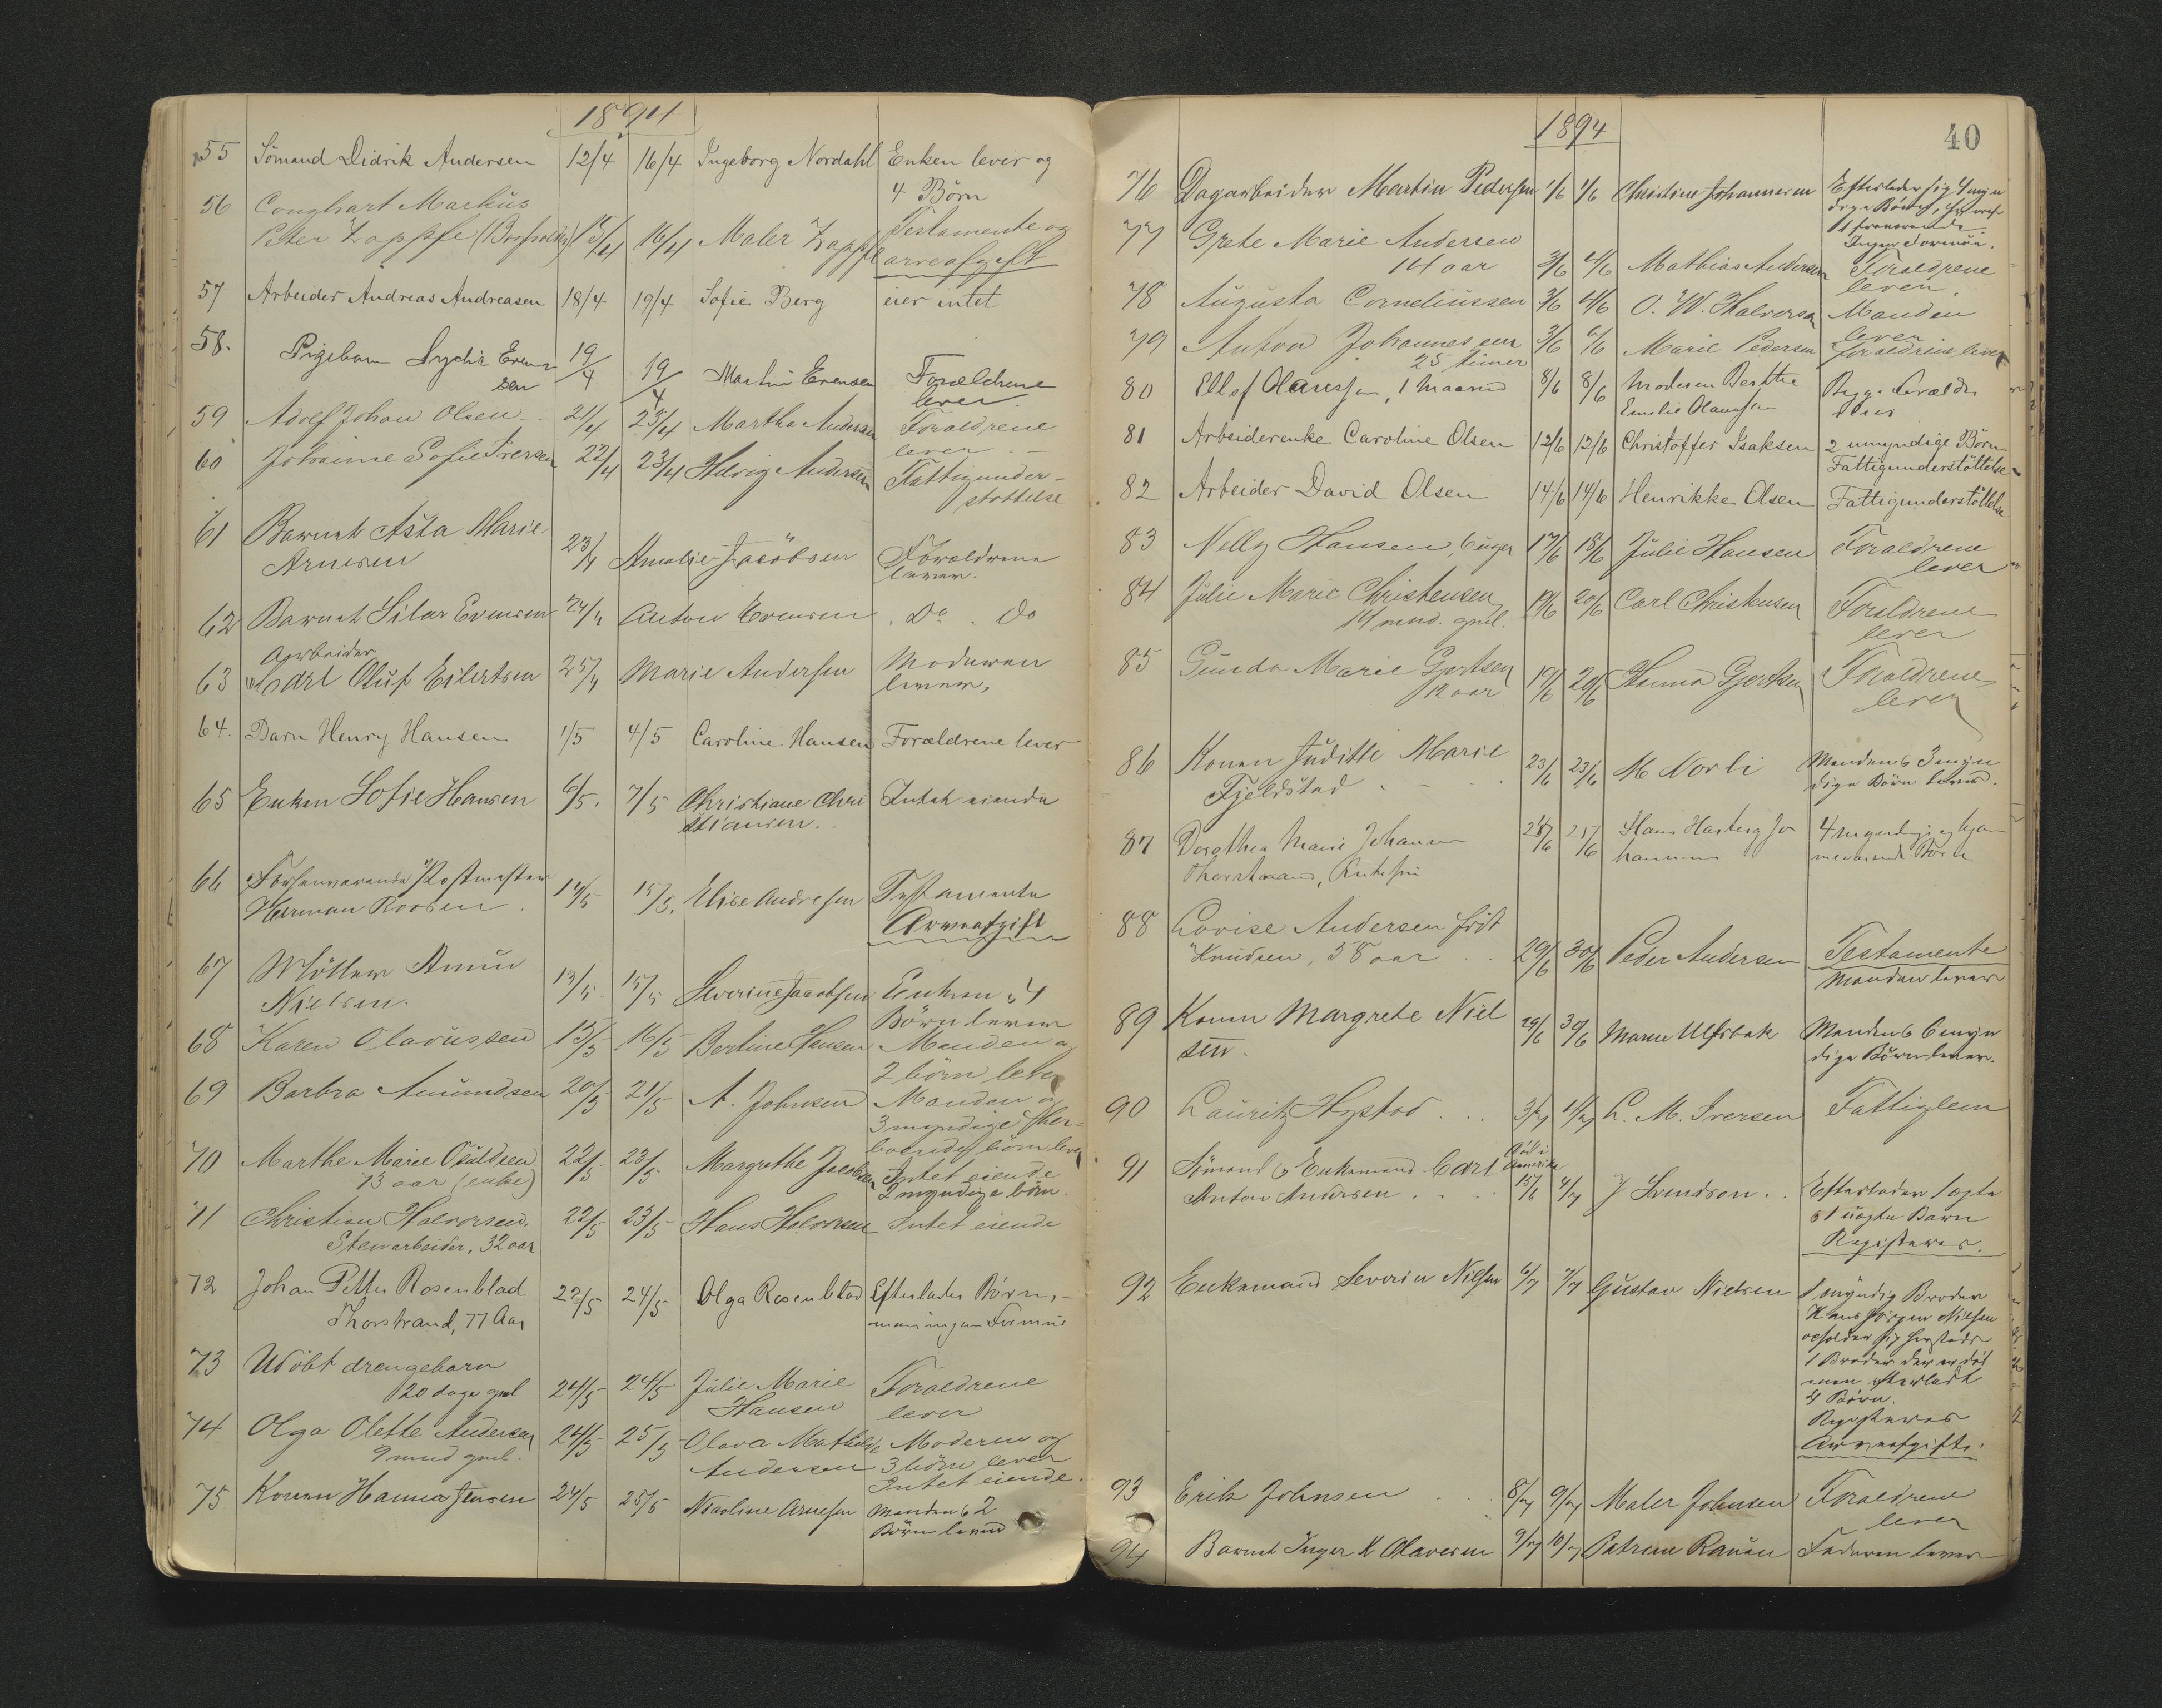 1894
55 Sömand Didrik Andersen 12/4 16/4 Ingeborg Nordahl Enken lever og
4 Börn
56 Conghart Markus
Peter Zappfe 15/4 16/4 Maler Zappfe Testamente og
arveafgift
57 Arbeider Andreas Andreasen 18/4 19/4 Sofie Berg eier intet
58. Pigebarn Lydia Even
sen 19/4 19/4 Martin Evensen Forældrene
lever.
59 Adolf Johan Olsen 21/4 23/4 Martha Andersen Foraldrene
lever
60 Johanne Sofie Iversen 22/4 23/4 Helvig Andersen Fattigunder-
stottelse
61 Barnet Asta Marie
Arnesen 23/4 Amalie Jacobsen Foraldrene
lever.
62 Barnet Evensen 24/4 Anton Evensen Do Do
Arbeider
63 Carl Oluf Eilertsen 25/4 Marie Andersen Moderen
lever.
64. Barn Henry Hansen 1/5 4/5 Caroline Hansen Forældrene lever
65 Enken Sofie Hansen 6/5. 7/5 Christiane Chri
stiansen. Intet eiende
66 Forhenværende Postmester
Herman Roosen 14/5 15/5. Elise Andresen Testamente
Arveafgift
67 Möller Amun
Nielsen. 13/5 15/5 Severine Jacobsen Enken & 4
Börn lever
68 Karen Olavussen 15/5 16/5 Berline Hansen Manden og
2 börn lever
69 Barbra Amundsen 20/5 21/5 A. Johnsen Manden og
3 myndige her-
boende börn lever
70 Marthe Marie Osuldsen
73 aar (enke) 22/5 23/5 Margrethe Jacobsen Intet eiende
2 myndige börn.
71 Christian Halvorsen,
Stenarbeider, 32 aar 22/5 23/5 Hans Halvorsen Intet eiende
72 Johan Petter Rosenblad
Thorstrand, 77 Aar 22/5 24/5 Olga Rosenblad Efterlader Börn,-
men ingen Formue
73 Udöbt drengebarn
20 dage gml 24/5 24/5 Julie Marie
Hansen Foraldrene
lever
74 Olga Olette Andersen
9 mnd gml. 24/5 25/5 Olava Mathilde
Andersen Moderen og
3 börn lever
Intet eiende.
75 Konen Hanna Jensen 24/5 25/5 Nicoline Arnesen Manden & 2
Börn lever
1894
40
76 Dagarbeider Martin Pedersen 1/6 1/6 Christine Johannesen Efterlader sig 4 myn
dige Börn,
1 fraværende
Ingen Formue.
77 Grete Marie Andersen
14 aar 3/6 4/6 Mathias Andersen Foraldrene
lever.
78 Augusta Corneliussen 3/6 4/6 O. W. Halvorsen Manden
lever
79 Anton Johannessen
25 timer 3/6 6/6 Marie Pedersen foraldrene lever
80 Ellef Olaussen, 1 Maaned 8/6 8/6 Moderen Berthe
Emilie Olaussen Begge Forældre
81 Arbeiderenke Caroline Olsen 12/6 12/6 Christoffer Isaksen 2 umyndige Börn
Fattigunderstöttelse
82 Arbeider David Olsen 14/6 14/6 Henrikke Olsen Fattigunderstöttelse
83 Nelly Hansen, 6 uger 17/6 18/6 Julie Hansen Foraldrene
lever
84 Julie Marie Christensen
14 mnd. gml. 19/6 20/6 Carl Christensen Foreldrene
lever
85 Gunda Marie Gjertsen
12 aar 19/6 20/6 Hanna Gjertsen Foraldrene
lever
86 Konen Juditte Marie
Fjeldstad 23/6 23/6 M Norli Manden & 3 myn
dige Börn lever.
87 Dorothea Marie Johanne
Thorstrand, 25/6 Hans Hartvig Jo
hannesen 4 myndige og hjem
meværende Börn
88 Lovise Andersen född
Knudsen, 58 aar 29/6 30/6 Peder Andersen Testamente
Manden lever
89 Konen Margrete Niel
sen. 29/6 30/6 Maren Ulfsbak Manden & 6 myn
dige Börn lever.
90 Lauritz Hystad 3/7 4/7 L. M. Iversen Fattiglem
91 Sömand & Enkemand Carl
Anton Andersen Död i
Amerika
15/6 4/7 J Svendsen Efterlader 1 ægte
& 1 uægte Barn
Registeres.
92 Enkemand Severin Nielsen 6/7 7/7 Gustav Nielsen 1 myndig Broder
Hans Jörgen Nielsen
opholder sig herstede
1 Broder der er död
men efterladt
4 Börn.
Registeres
Arveafgift.
93 Erik Johnsen 8/7 9/7 Maler Johnsen Foraldrene
lever
94 Barnet Inger K Olavesen 9/7 10/7 Patrine Faderen lever